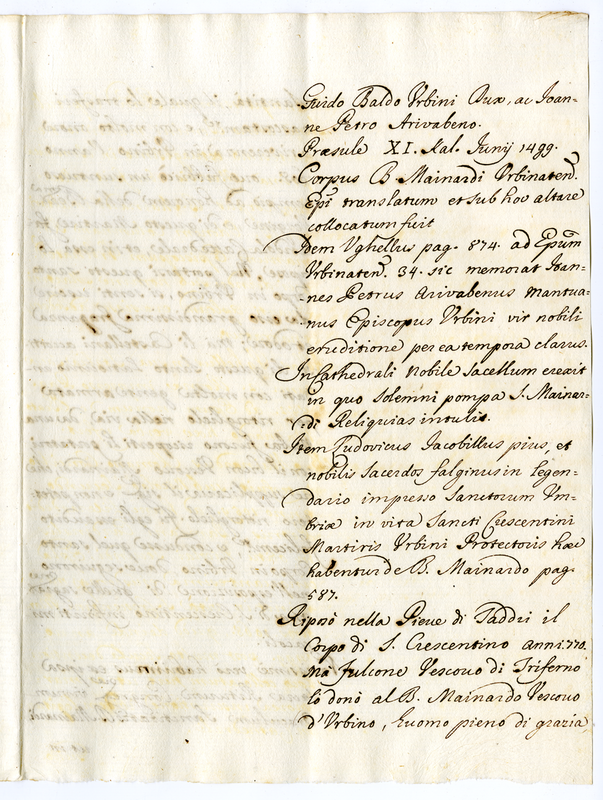 Guido Baldo Vrbini Dux, ac Ioan=
ne Petro Arivabeno.
Præsule XI. Kal. Junij 1499.
Corpus B. Mainardi Vrbinaten.
Epi translatum et sub hoc altare
collocatum fuit
Idem Vghellus pag. 874. ad Epum
Vrbinaten. 34. sic memorat Ioan=
nes Petrus Arivabenus Mantua=
nus Episcopus Vrbini vir nobili
eruditione per ea tempora clarus.
In Cathedrali nobile sacellum erexit
in quo solemni pompa S. Mainar=
di Reliquias intulit.
Item Ludovicus Iacobillus pius, et
nobilis sacerdos falginus in legen=
dario impresso Sanctorum Vm=
briæ in vita Sancti Crescentini
Martiris Vrbini Protectoris hæc
habentur de B. Mainardo pag.
587.
Riposò nella Pieve di Saddi il
Corpo di S. Crescentino anni 770.
Mà fulcone Vescovo di Tiferno
lò donò al B. Mainardo Vescovo
d'Vrbino, huomo pieno di grazia,